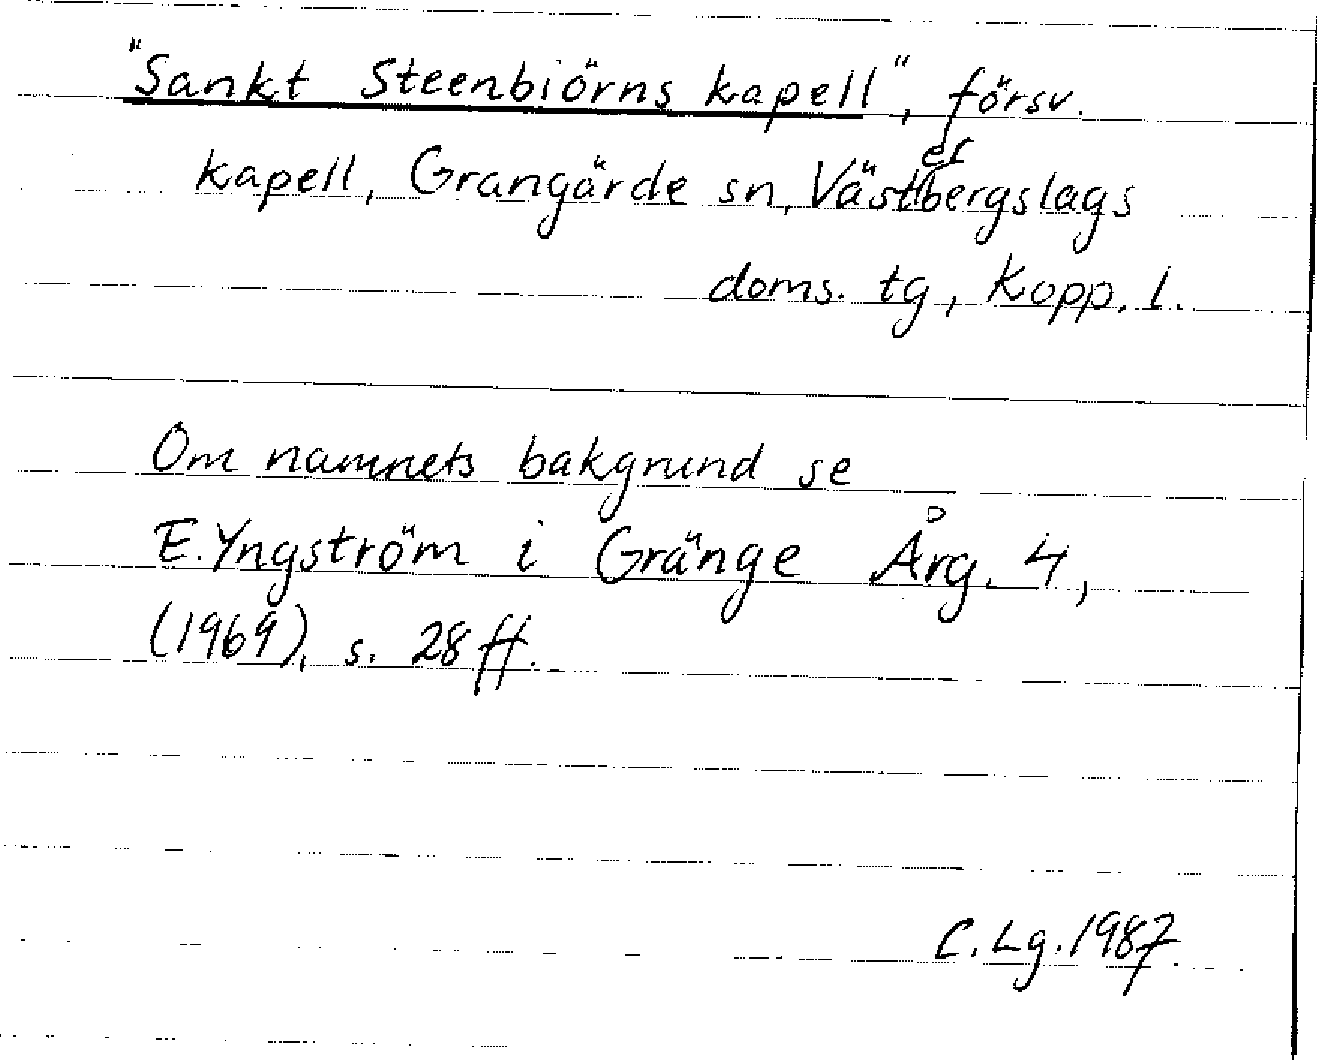 "Sankt Steenbiörns kapell", försv.
kapell, Grangärde sn, Västerbergslags
doms. tg, Kopp. l.
Om namnets bakgrund se
E. Yngström i Gränge Årg. 4,
(1969), s. 28 ff.
C. Lg. 1987.